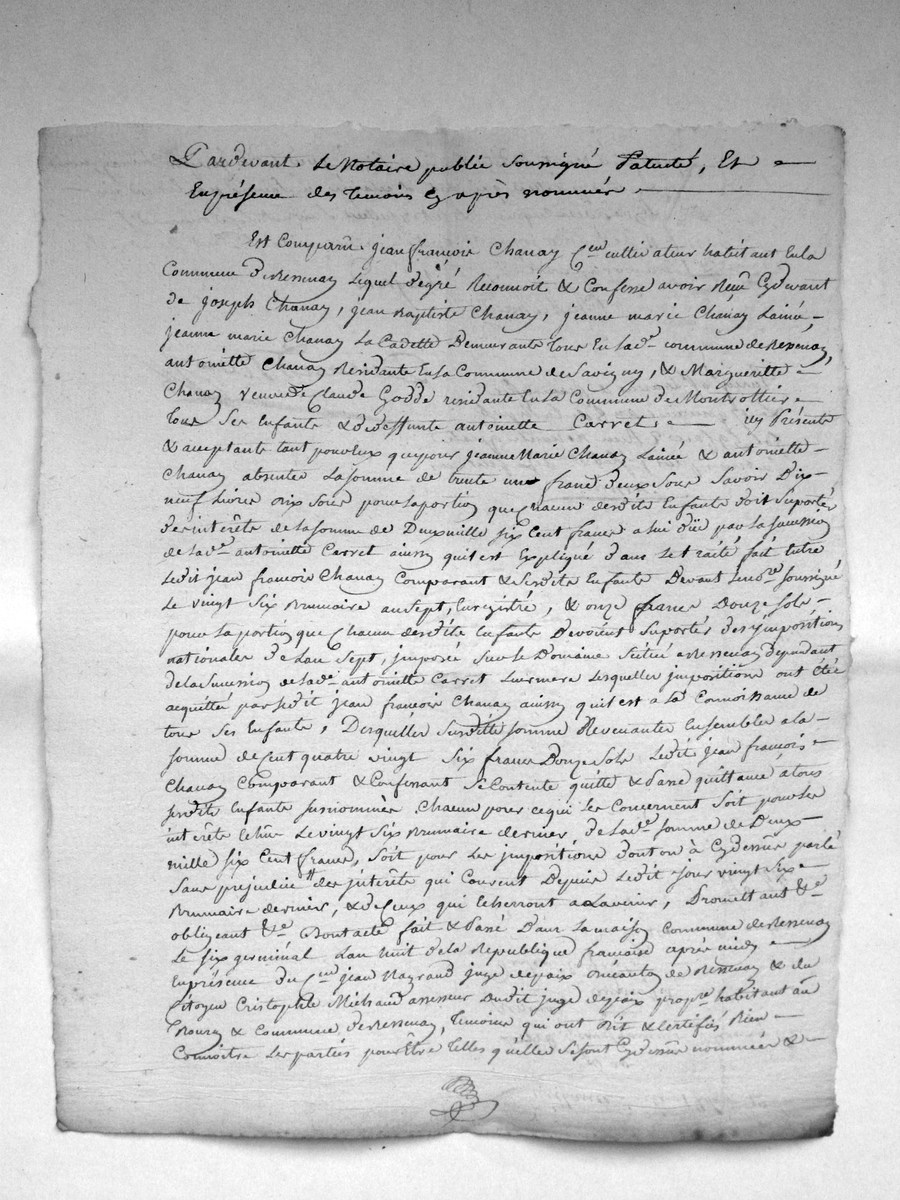 Pardevant Le Notaire public soussigné Patenté, Et
En présence des temoins cy après nommés
Est Comparu jean françois Chanay Cen cultivateur habitant En la
Commune de Ressenay Lequel de gré Reconnoit & Confesse avoir Reçu Cydevant
de joseph Chanay, jean Baptiste Chanay, jeanne marie Chanay Lainée
jeanne marie Chanay La Cadette Demeurants tous En lad.e commune de Ressenay,
antoinette Chanay Residante En la Commune de Savigny, & Margueritte
Chanay veuve de Claude Godde residante En la Commune de Montrottier
tous Ses Enfants & de deffunte antoinette Carret icy Présents
& acceptants tant pour Eux que pour jeanne Marie Chanay Lainée & antoinette
Chanay absentes La somme de trente un franc deux sous Savoir Dix
neuf Livres dix sous pour la portion que chacun desdits Enfants doit Suporter
des interêts de la somme de Deux mille six Cent francs a lui dûe par la succession
de lad.e antoinette Carret ainsy qu'il est Expliqué dans le traité fait Entre
Ledit jean françois Chanay Comparant & sesdits Enfants Devant Le no.re soussigné
Le vingt six Brumaire an sept, Enregistré, & onze francs Douze sols
pour la portion que Chacun desdits Enfants Devoient Suporter des jmpositions
nationales de Lan Sept, imposés sur le Domaine Scitué a Ressenay dependant
de la succession de lad.e antoinette Carret Leur mere Lesquelles impositions ont étés
acquittés par ledit jean françois Chanay ainsy qu'il est a la Connoissance de
tous Ses Enfants, Desquelles Susdittes sommes Revenantes Ensembles a la
somme de Cent quatre vingt Six francs Douze Sols Ledit jean françois
Chanay Comparant & Confessant Se Contente quitte & Passe quittance à tous
sesdits Enfants susnommés Chacun pour ce qui Les Concernent Soit pour les
interêts Echus Le vingt six Brumaire dernier, de lad.e somme de Deux
mille six Cent francs, soit pour Les jmpositions dont on à Cydessus parlé
Sans prejudice des jnterêts qui Courent Depuis Ledit jour vingt six
Brumaire dernier, & de Ceux qui Echerront a Lavenir, Promettant &.e
obligeant &.e Dont acte fait & Passé Dans La maison Commune de Ressenay
Le six germinal Lan huit de la Republique françoise après midy
En présence du Cen jean Nagrand juge de paix du canton de Ressenay & du
Citoyen Cristophle Michaud assesseur Dudit juge de paix propre habitant au
Bourg & Commune de Ressenay, temoins qui ont dit & Certifiés Bien
Connoitre Les parties pour Être telles quelles Se sont Cydessus nommées &